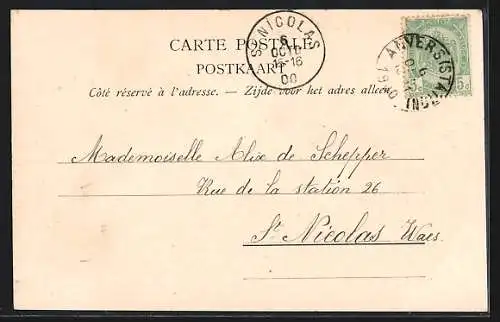 CARTE POSTALE
POSTKAART
Côté réservé à l'adresse. — Zijde voor het adres alleen.
ST NICOLAS
6
OCTO
15-16
00
ANVERS (STATION)
5c
Mademoiselle Alix de Schepper
Rue de la station 26
St Nicolas Waes